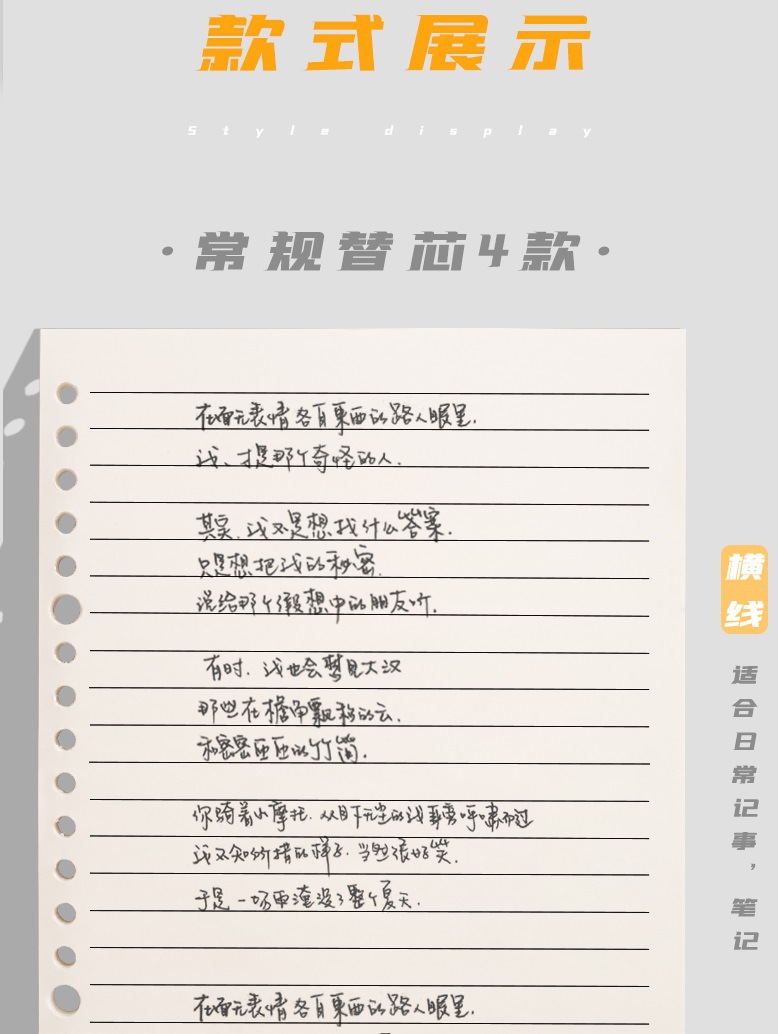 款式展示
Style display
·常规替芯4款·
在面无表情各自東西的路人眼里.
我、才是那个奇怪的人.
其实.我不是想找什么答案.
只是想把我的秘密.
说给那个假想中的朋友听.
有时.我也会梦见大汉
那些在檐角飘移的云.
和密密匝匝的竹简.
你骑着小摩托.从目下无尘的我耳旁呼啸而过
我不知所措的样子.当然很好笑.
于是一场雨淹没了整个夏天.
在面无表情各自東西的路人眼里.
横线
适合日常记事，笔记